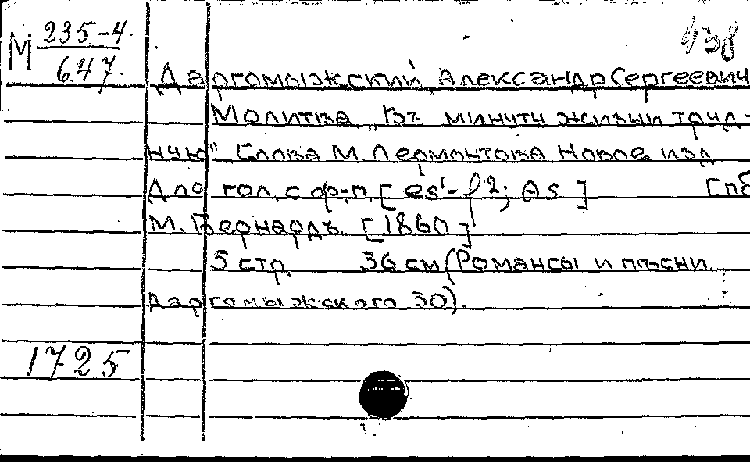 М 235-4 / 647.
438
Даргомыжский Александр Сергеевич
Молитва „Въ минуту жизни труд-
ную" Слова М. Лермонтова Новое изд
Для гол. с ф-п. [es¹-f2; As] Спб
М. Бернардъ [1860]
5 стр. 36 см (Романсы и пѣсни
Даргомыжского 30).
1725